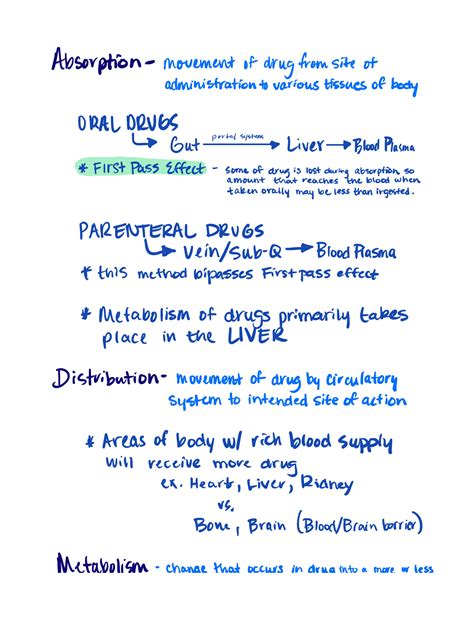 Absorption - movement of drug from site of
administration to various tissues of body
ORAL DRUGS
Gut portal system Liver Blood Plasma
* First Pass Effect - some of drug is lost during absorption so
amount that reaches the blood when
taken orally may be less than ingested.
PARENTERAL DRUGS
Vein/Sub-Q Blood Plasma
* this method bipasses First pass effect
* Metabolism of drugs primarily takes
place in the LIVER
Distribution - movement of drug by circulatory
system to intended site of action
* Areas of body w/ rich blood supply
will receive more drug
ex. Heart, Liver, Kidney
vs.
Bone, Brain (Blood/Brain barrier)
Metabolism - change that occurs in drug into a more or less